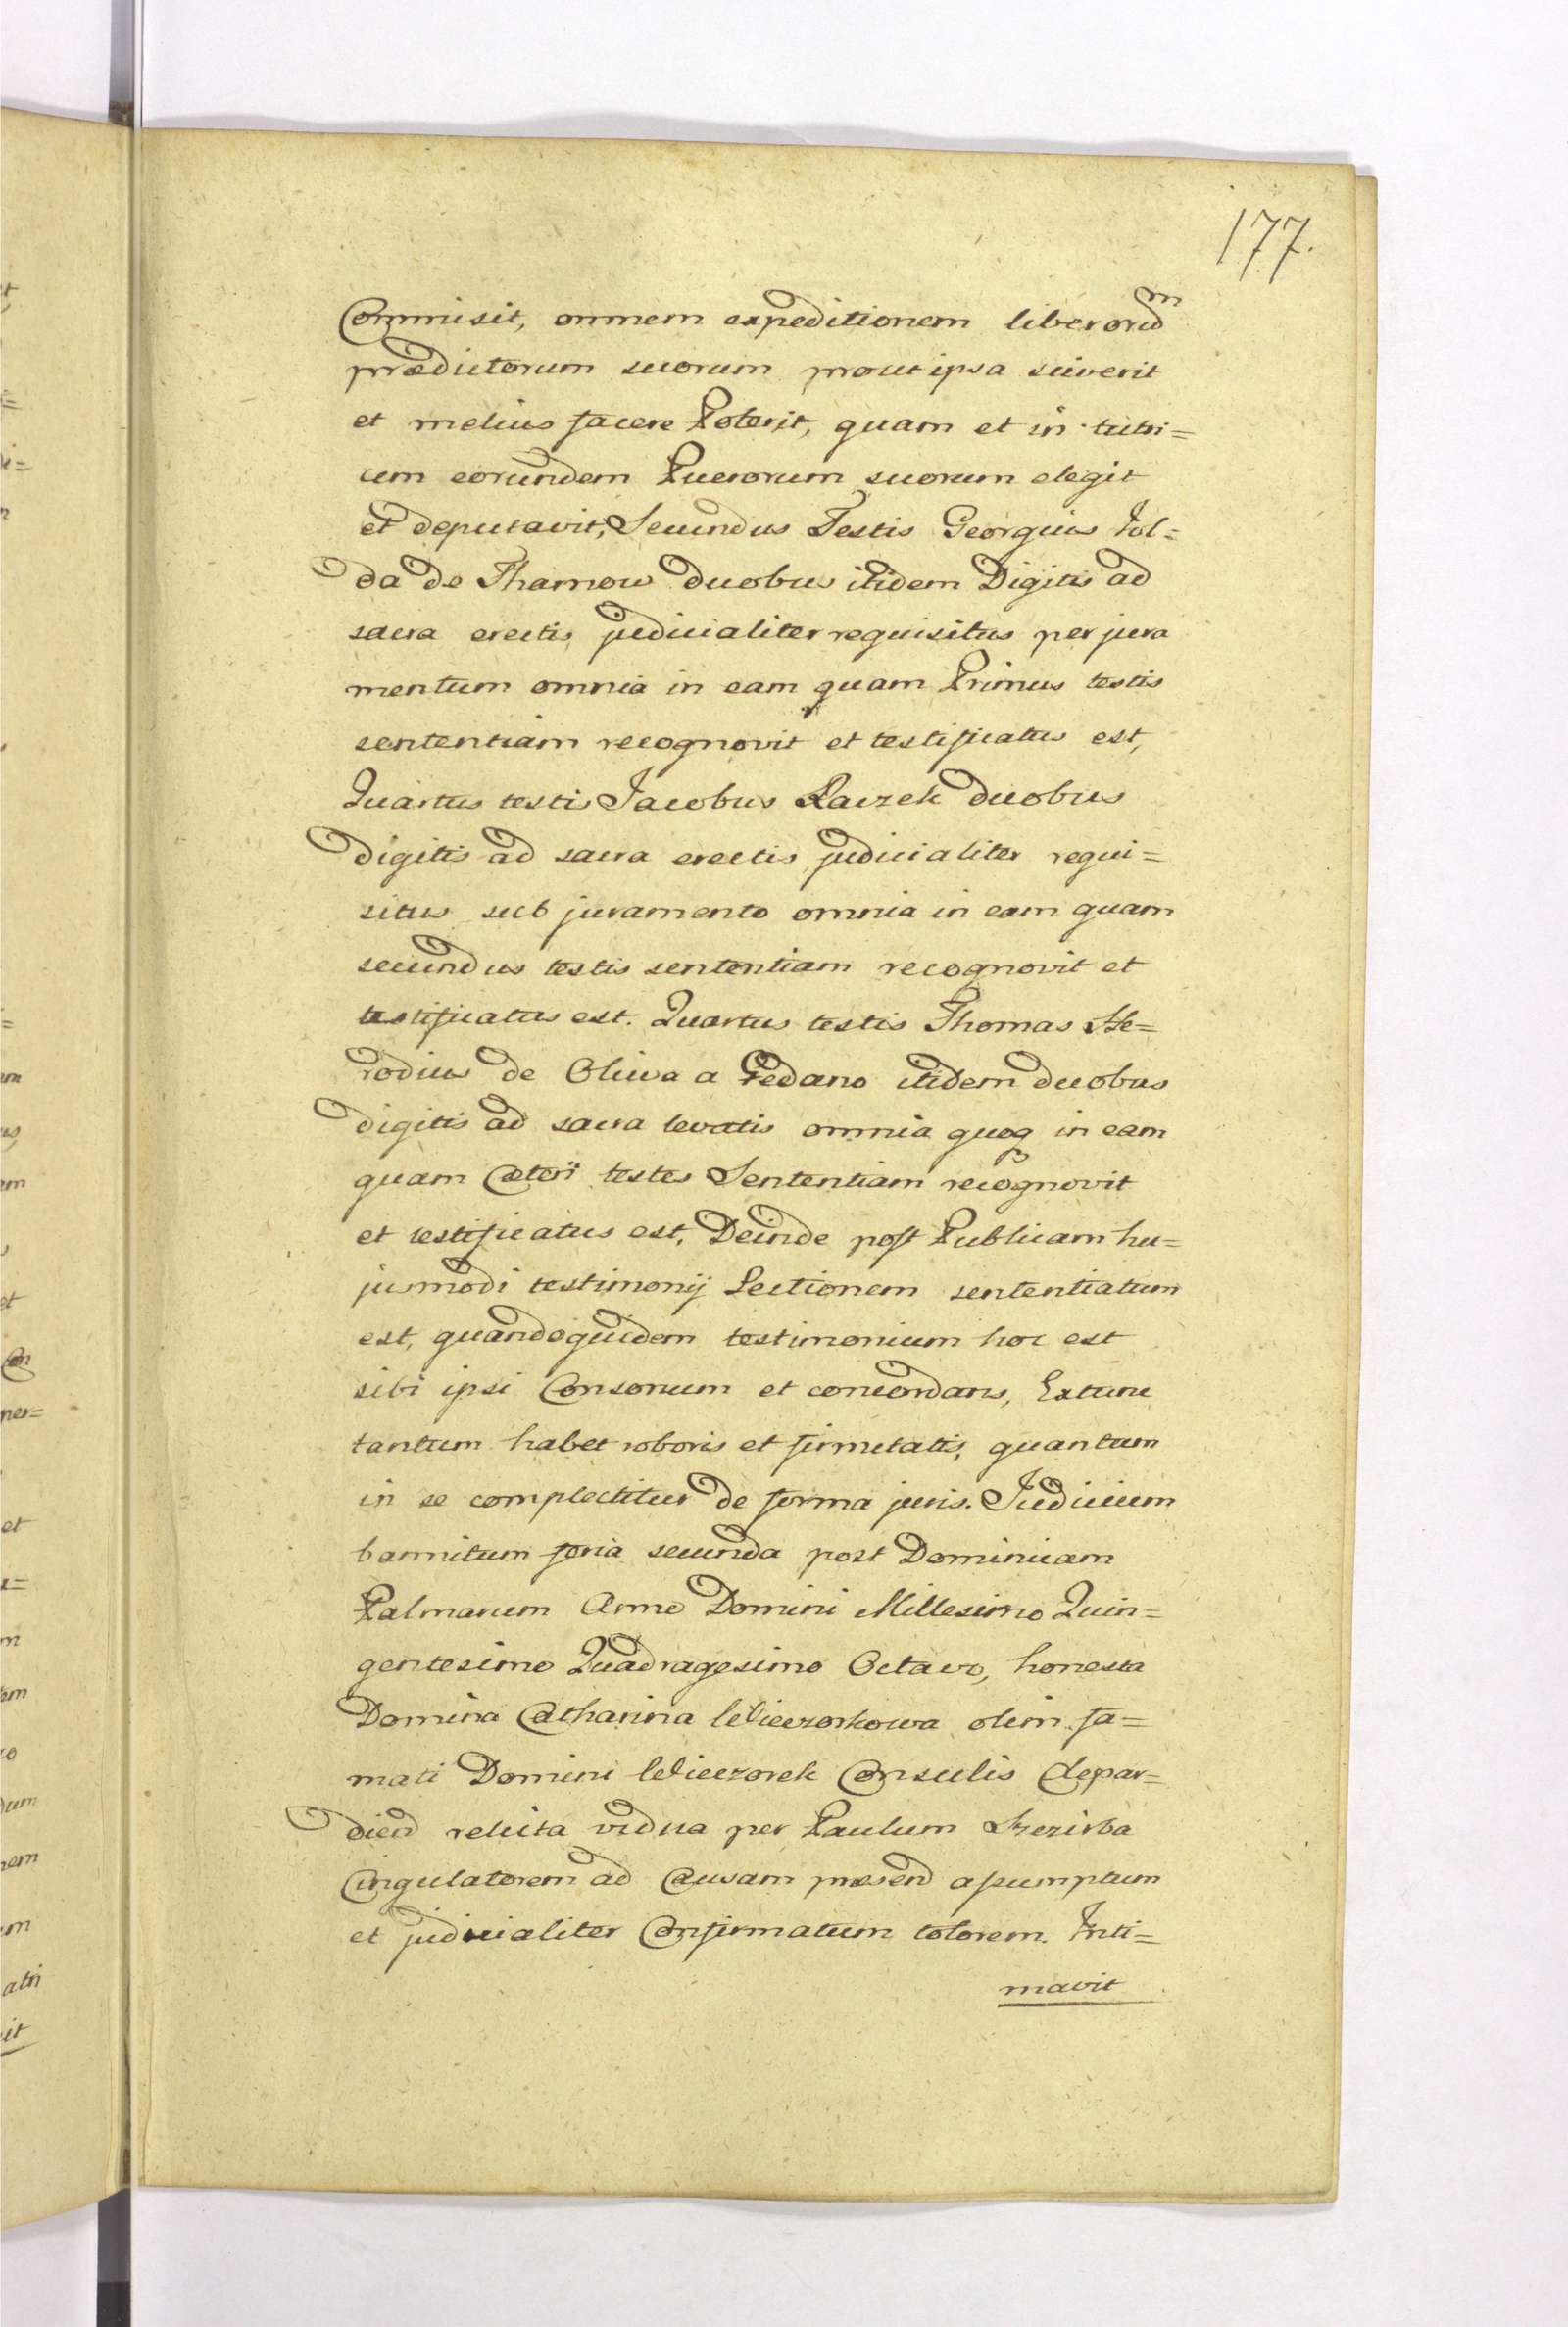 177.
Commisit, omnem expeditionem liberorum
prædictorum suorum prout ipsa sciverit
et melius facere Poterit, quam et in tutri=
cem eorundem Puerorum suorum elegit
et deputavit, Secundus Testis Georgius Jol=
da de Tharnow duobus itidem Digitis ad
sacra erectis judicialiter requisitus per jura
mentum omnia in eam quam Primus testis
sententiam recognovit et testificatus est,
Quartus testis Jacobus Raczek duobus
digitis ad sacra erectis judicialiter requi=
situs sub juramento omnia in eam quam
secundus testis sententiam recognovit et
testificatus est. Quartus testis Thomas He=
rodius de Oliwa a Gedano itidem duobus
digitis ad sacra levatis omnia quoq in eam
quam Cæteri testes Sententiam recognovit
et testificatus est, Deinde post Publicam hu=
jusmodi testimonij Lectionem sententiatum
est, quandoquidem testimonium hoc est
sibi ipsi Consonum et concordans, Extunc
tantum habet roboris et firmitatis, quantum
in se complectitur de forma juris. Judicium
bannitum feria secunda post Dominicam
Palmarum Anno Domini Millesimo Quin=
gentesimo Quadragesimo Octavo, honesta
Domina Catharina Wieczorkowa olim fa=
mati Domini Wieczorek Consulis Clepar=
dien relicta vidua per Paulum
Cingulatorem ad Causam præsen assumptum
et judicialiter Confirmatum totorem. Inti=
mavit